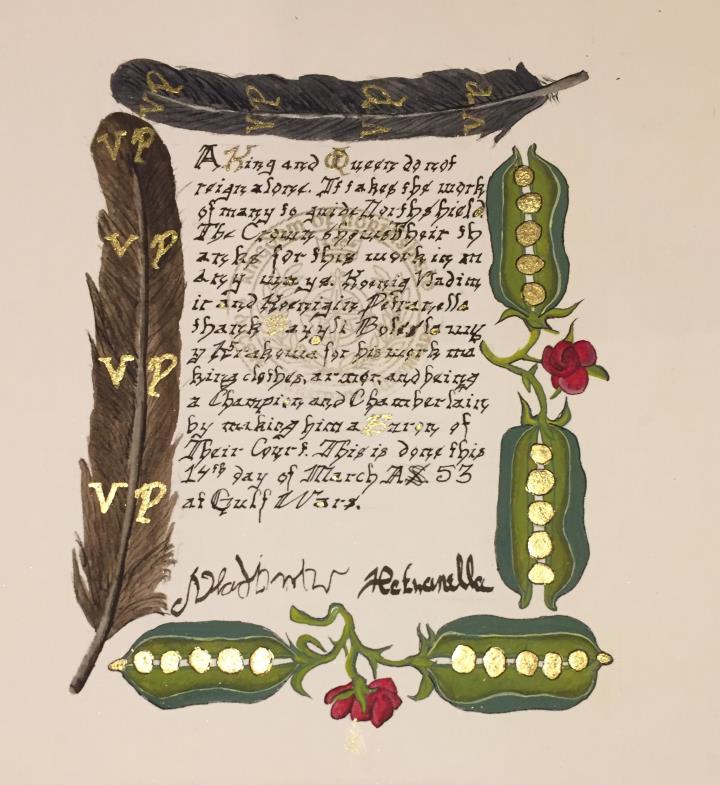 VP VP VP VP
VP
VP
VP
VP
A King and Queen do not
reign alone. It takes the work
of many to guide Northshield.
The Crown shows Their th
anks for this work in m
any ways. Koenig Vladim
ir and Koenigin Petranella
thank Vasyli Boleslawuy
y Krakowa for his work ma
king clothes, armor, and being
a Champion and Chamberlain
by making him a Baron of
Their Court. This is done this
14th day of March AS 53
at Gulf Wars.
Petranella